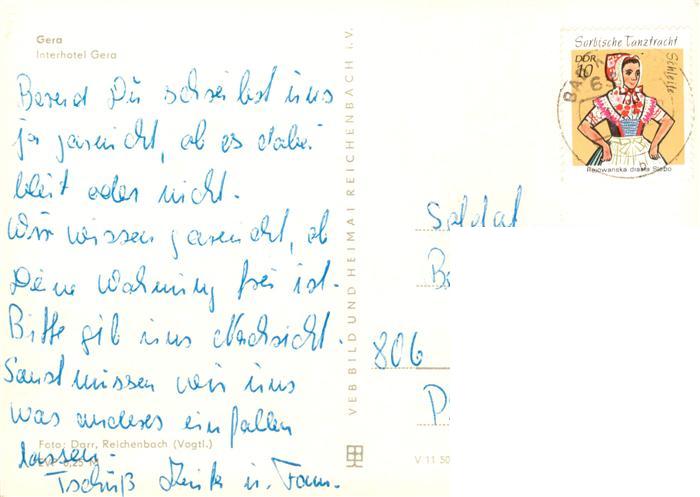 Gera
Interhotel Gera
Bernd Du schreibst uns
ja garnicht, ob es dabei
bleibt oder nicht.
Wir wissen garnicht, ob
Deine Wohnung frei ist.
Bitte gib uns Nachricht.
Sonst müssen wir uns
was anderes einfallen
lassen.
Tschüß u. Fam.
Foto: Darr, Reichenbach (Vogtl.)
VEB BILD UND HEIMAT REICHENBACH I.V.
Sorbische Tanztracht
Schleife
DDR
10
Rejowanska drasta Slebo
Soldat
806
V 11 50